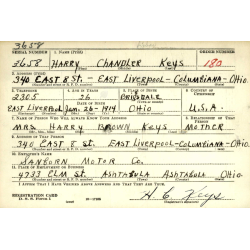 3658
SERIAL NUMBER 1. NAME (PRINT) ORDER NUMBER
3658 HARRY CHANDLER KEYS 180
2. ADDRESS (PRINT)
340 EAST 8 ST. - EAST LIVERPOOL - COLUMBIANA - OHIO.
3. TELEPHONE 4. AGE IN YEARS 5. PLACE OF BIRTH 6. COUNTRY OF CITIZENSHIP
2305 26
EAST LIVERPOOL JAN. 26 - 1914 OHIO U.S.A.
7. NAME OF PERSON WHO WILL ALWAYS KNOW YOUR ADDRESS 8. RELATIONSHIP OF THAT PERSON
MRS HARRY BROWN KEYS MOTHER
9. ADDRESS OF THAT PERSON
340 EAST 8 ST. EAST LIVERPOOL - COLUMBIANA - OHIO.
10. EMPLOYER'S NAME
SANBORN MOTOR CO.
11. PLACE OF EMPLOYMENT OR BUSINESS
4733 ELM ST. ASHTABULA ASHTABULA OHIO.
I AFFIRM THAT I HAVE VERIFIED ABOVE ANSWERS AND THAT THEY ARE TRUE.
REGISTRATION CARD
D. S. S. Form 1 H. C. Keys